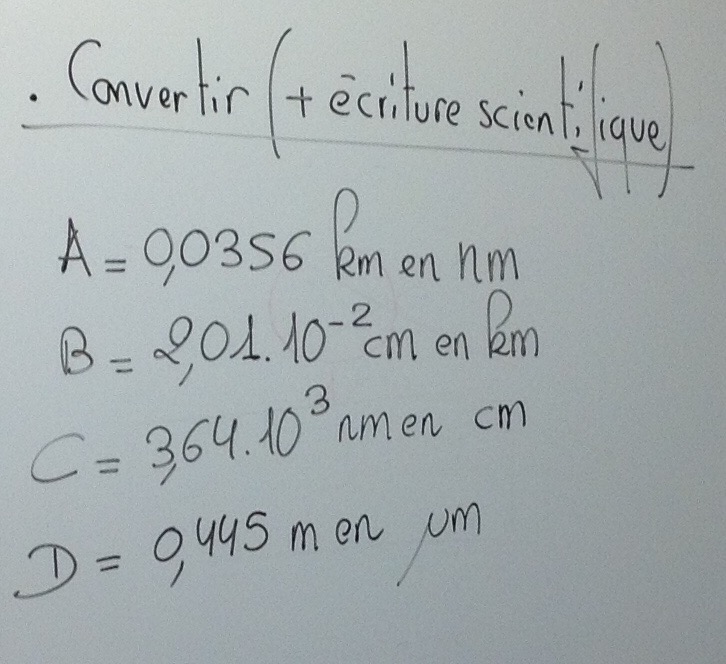 . Convertir (+ écriture scientifique)
A = 0,0356 km en nm
B = 2,01.10⁻² cm en km
C = 3,64.10³ nm en cm
D = 0,445 m en μm